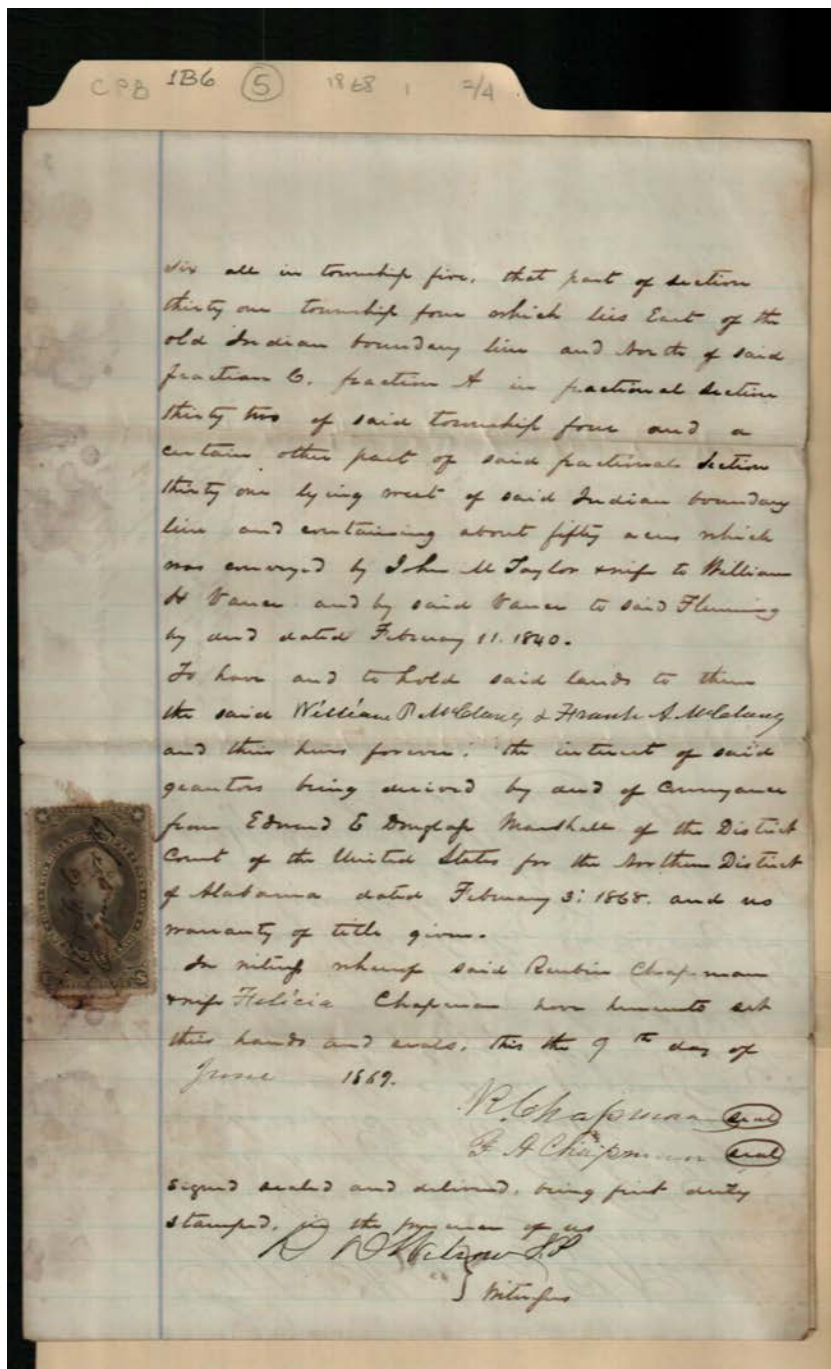 CPB 1B6 5 1868 2/4
six all in township five, that part of section
thirty one township four which lies East of the
old Indian boundary line and North of said
fraction C. fraction A in fractional section
thirty two of said township four and a
certain other part of said fractional Section
thirty one lying west of said Indian boundary
line and containing about fifty acres which
was conveyed by John M Taylor & wife to William
H Vance and by said Vance to said Fleming
by deed dated February 11. 1840.
To have and to hold said lands to them
the said William P. McClung & Frank A. McClung
and their heirs forever: the interest of said
grantors being derived by deed of Conveyance
from Edward E Douglass Marshall of the District
Court of the United States for the Northern District
of Alabama dated February 3: 1868. and no
warranty of title given.
In witness whereof said Reuben Chapman
& wife Felicia Chapman have hereunto set
their hands and seals, this the 9th day of
June 1869.
R. Chapman seal
F A Chapman seal
signed sealed and delivered, being first duly
stamped, in the presence of us
Wilson J.P.
} Witnesses